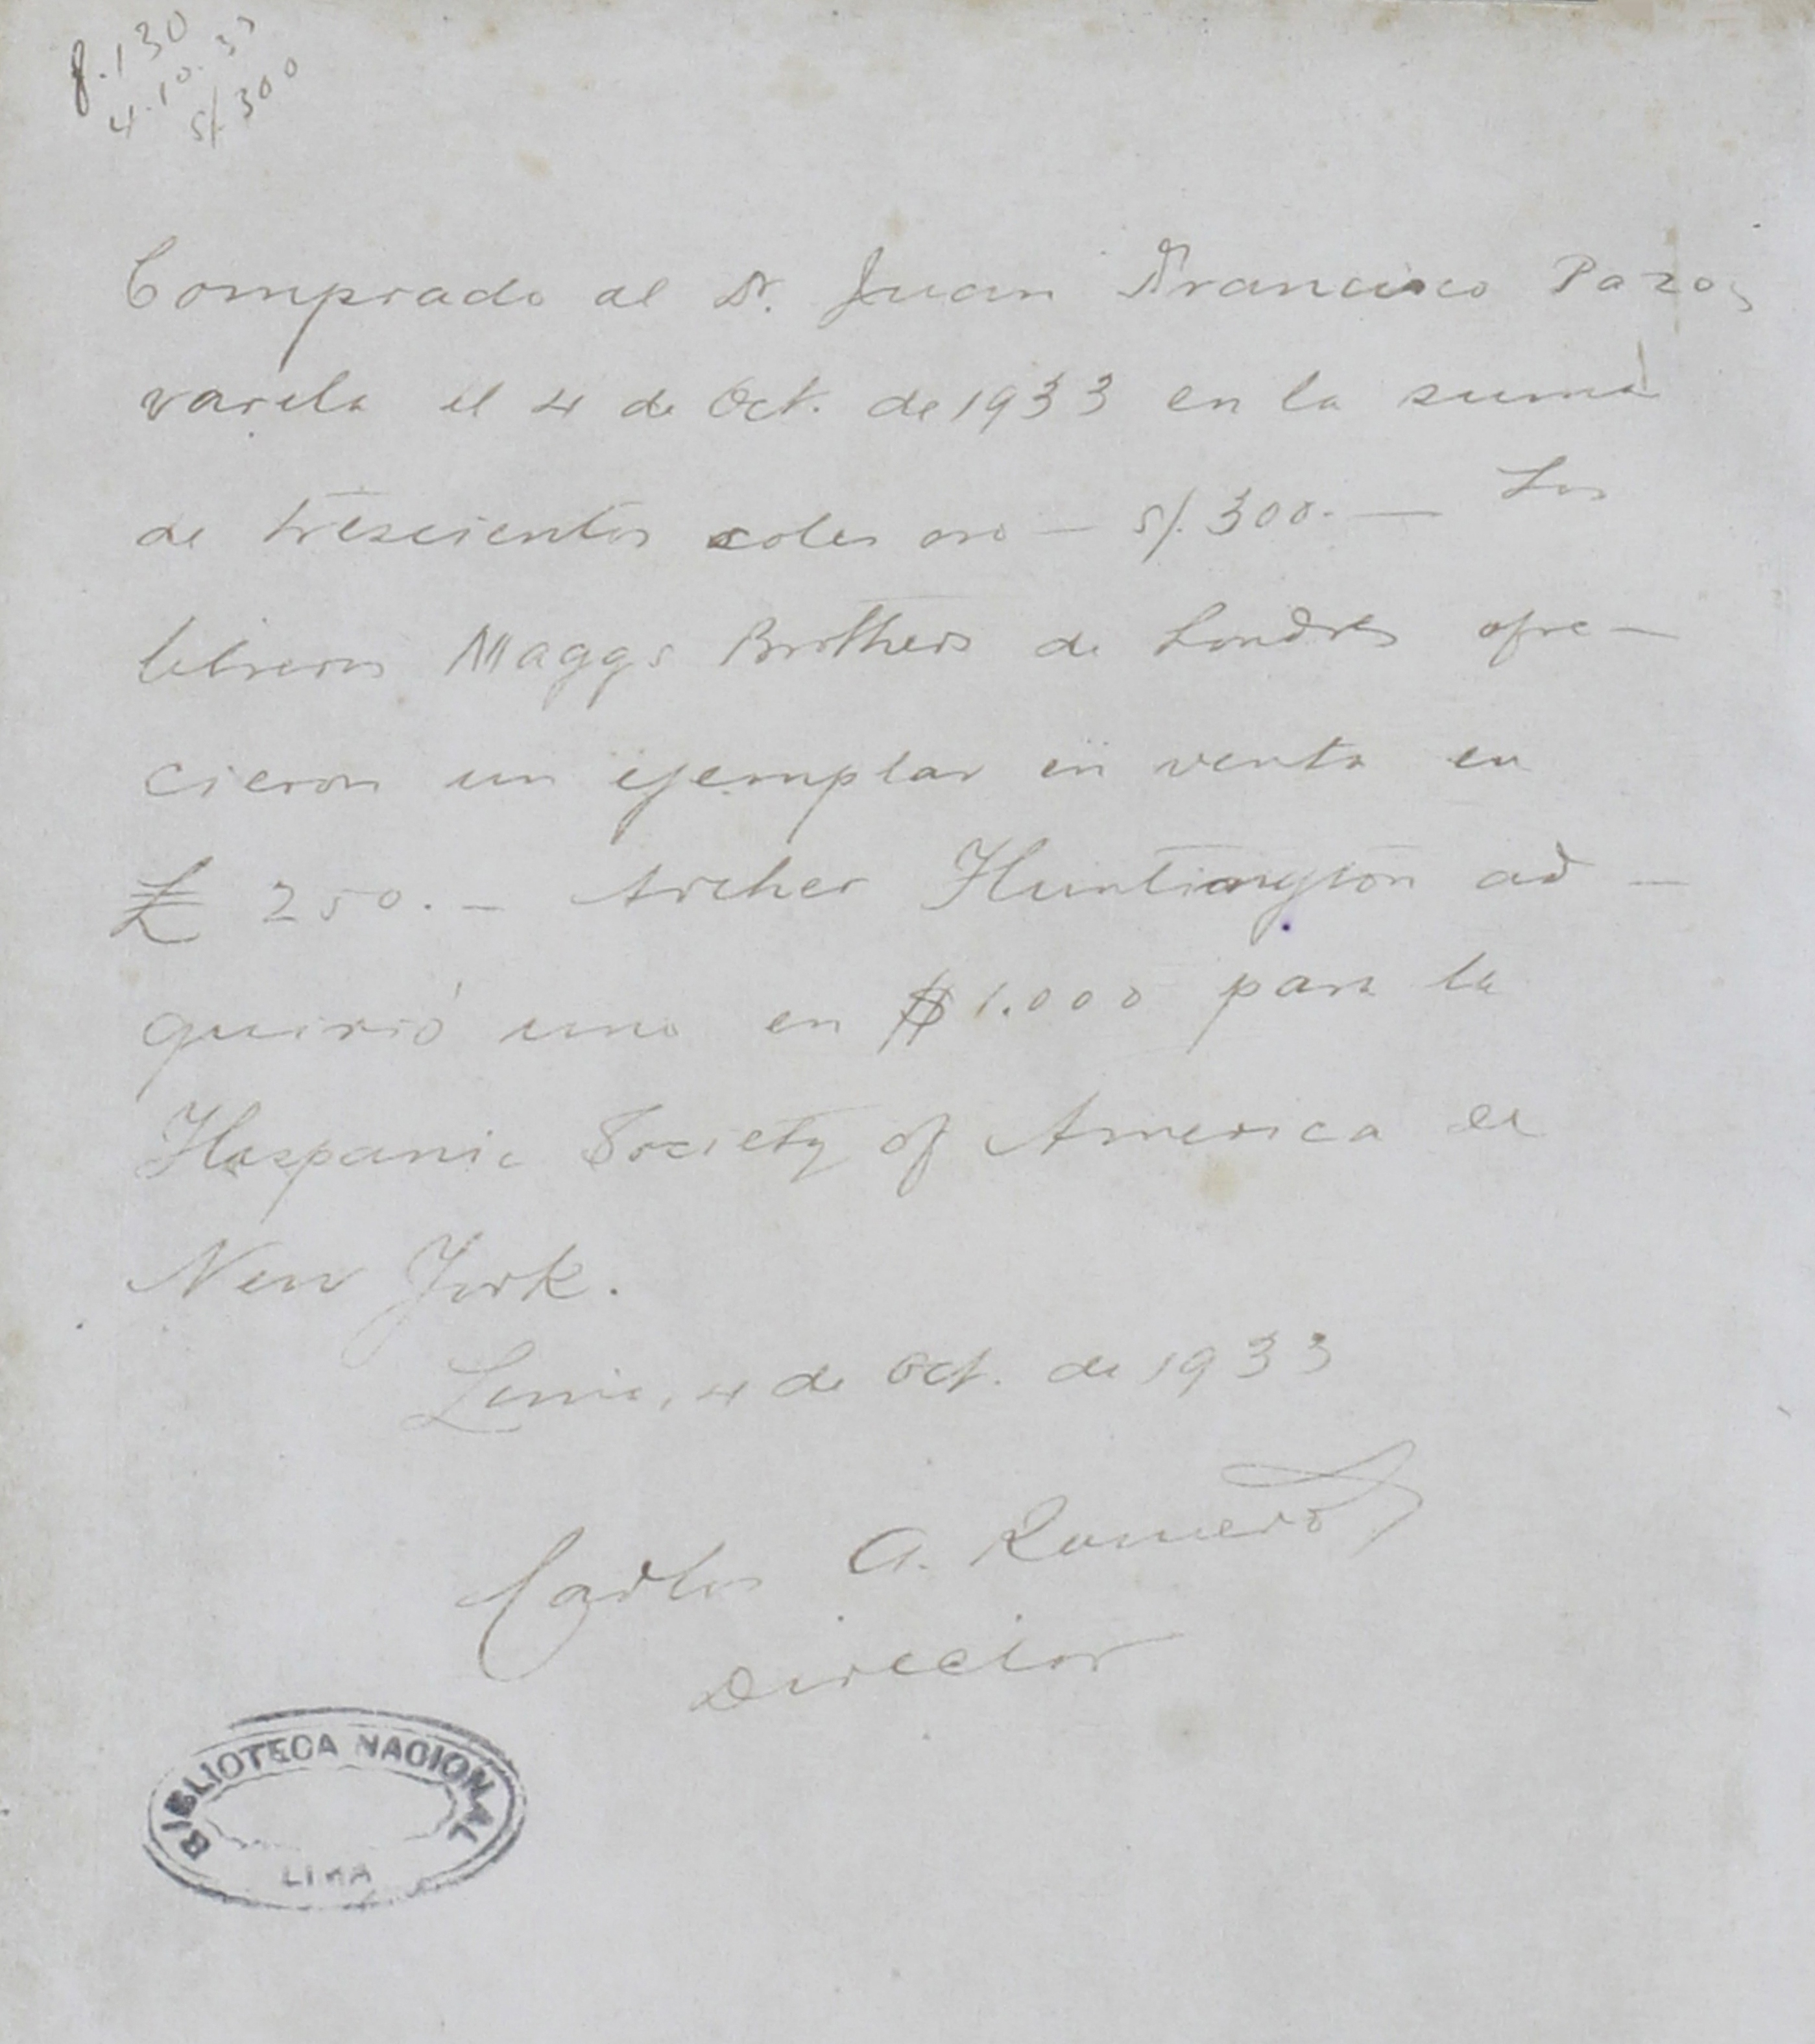 8.130
4.10.33
S/. 300
Comprado al Dr. Juan Francisco Pazos
varela el 4 de Oct. de 1933 en la suma
de trescientos soles oro — S/. 300. — Los
libreros Maggs Brothers de Londres ofre—
cieron un ejemplar en venta en
£ 250. — Archer Huntington ad—
quirió uno en $ 1.000 para la
Hispanic Society of America de
New York.
Lima, 4 de Oct. de 1933
Carlos A. Romero
Director
BIBLIOTECA NACIONAL
LIMA